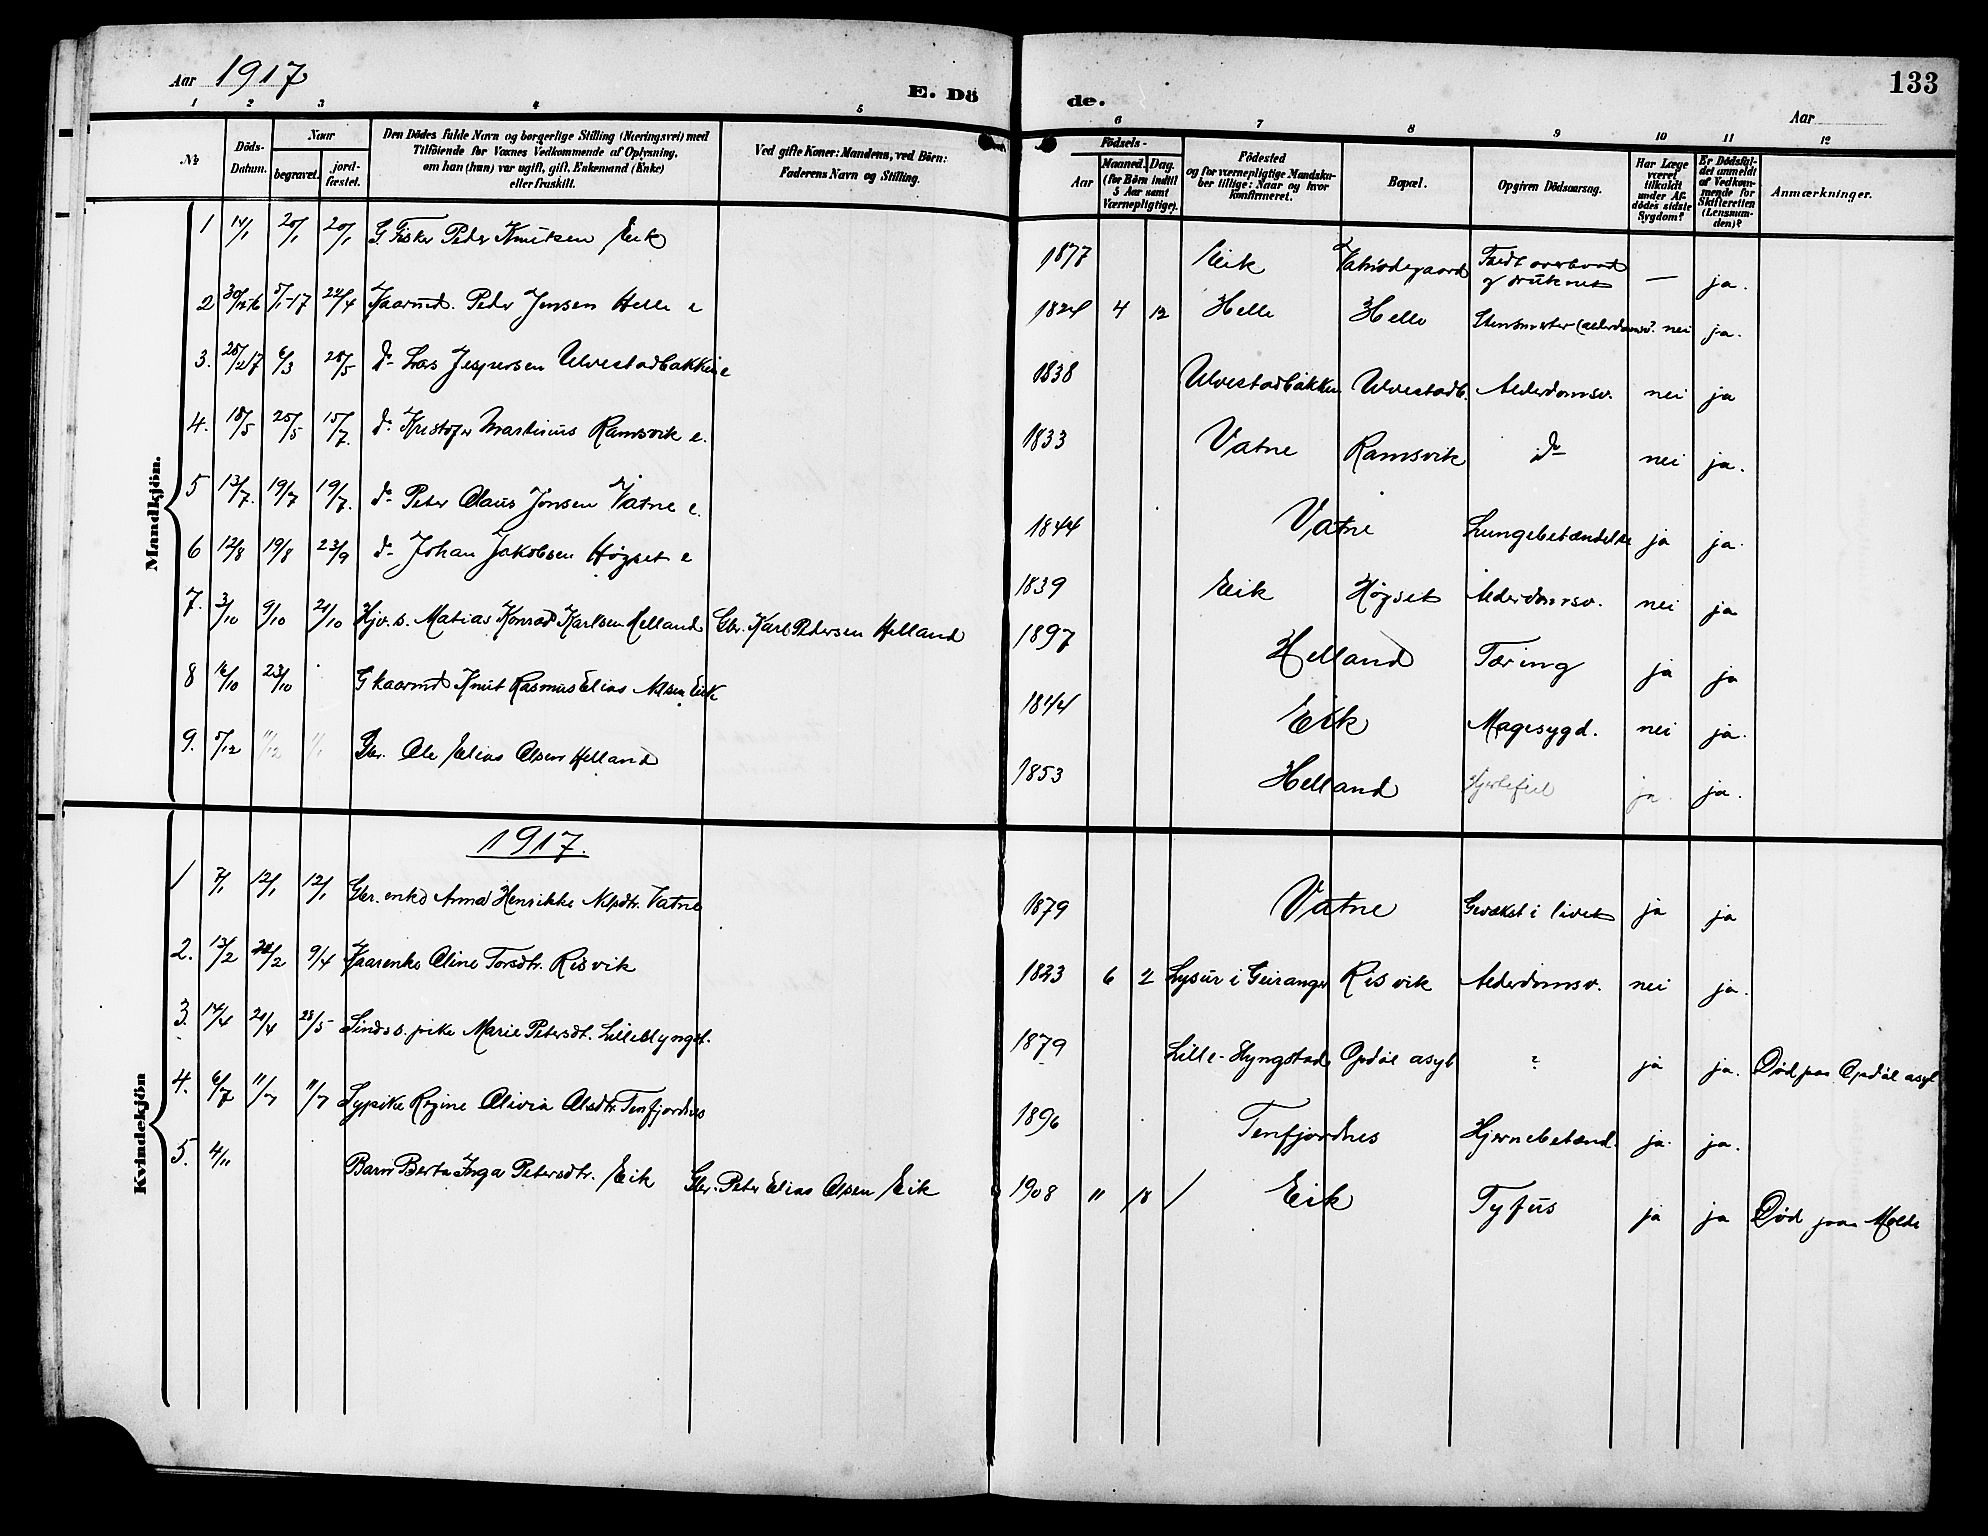 Aar 1917 E. Dö de. Aar 133
1 2 3 4 5 6 7 8 9 10 11 12
№
Döds-
Datum.
Naar
begravet.
jord-
fæstet.
Den Dödes fulde Navn og borgerlige Stilling (Næringsvei) med
Tilföiende for Voxnes Vedkommende af Oplysning,
om han (hun) var ugift, gift, Enkemand (Enke)
eller fraskilt.
Ved gifte Koner: Mandens, ved Börn:
Faderens Navn og Stilling.
Födsels-
Aar
Maaned. Dag.
(for Börn indtil
5 Aar samt
Værnepligtige).
Födested
og for værnepligtige Mandska-
ber tillige: Naar og hvor
konfirmeret.
Bopæl.
Opgiven Dödsaarsag.
Har Læge
været
tilkaldt
under Af-
dödes sidste
Sygdom?
Er Dödsfal-
det anmeldt
af Vedkom-
mende for
Skifteretten
(Lensman-
den)?
Anmærkninger.
Mandkjön.
1 14/1 20/1 20/1 G. Fisker Peder Knutsen Eik 1877 Eik Faldt overbord — ja.
og druknet
2 30/12-16 5/1-17 22/4 Kaarmd. Peder Jensen Helle e 1824 4 12 Helle Helle nei ja.
3. 28/2 17 6/3 28/5 do Lars Jespersen Ulvestadbakken e 1838 Ulvestadbakken Ulvestadb. Alderdomsv. nei ja
4. 18/5 25/5 15/7. do Kristofer Martinus Ramsvik e. 1833 Vatne Ramsvik do nei ja.
5 13/7. 19/7 19/7. do Peter Claus Jonsen Vatne e. 1844 Vatne Lungebetændelse ja ja.
6 12/8 19/8 23/9 do Johan Jakobsen Høgset e 1839 Eik Høgset Alderdomsv. nei ja
7. 3/10 9/10 21/10 Hjv. s. Matias Konrad Karlsen Helland Gbr. Karl Pedersen Helland 1897 Helland Tæring ja ja
8 16/10 23/10 G kaarmd Knut Rasmus Elias Nilsen Eik 1844 Eik Magesygd. nei ja.
9. 5/12 11/12 1/1 Gbr. Ole Elias Olsen Helland 1853 Helland Hjertefeil ja. ja.
Kvindekjön
1917.
1 7/1 12/1 12/1 Gbr. enke Anna Henrikke Nilsdtr. Vatne 1879 Vatne Gevækst i livet ja ja
2. 13/2 20/2 9/4 Kaarenke Oline Torsdtr. Risvik 1823 6 2 i Geiranger Risvik Alderdomsv. nei ja.
3. 14/4 21/4 28/5 Sindss. pike Marie Petersdt. Lilleslyngst. 1879 Lille-Slyngstad Opdøl asyl ? ja ja. Død paa Opdøl asyl
4. 6/7 11/7 11/7 Sypike Regine Olivia Olsdtr. Tenfjordnes 1896 Tenfjordnes Hjernebetænd. ja. ja.
5. 4/11 Barn Berta Inga Petersdtr. Eik Gbr. Peter Elias Olsen Eik 1908 11 18 Eik Tyfus ja ja Død paa Molde